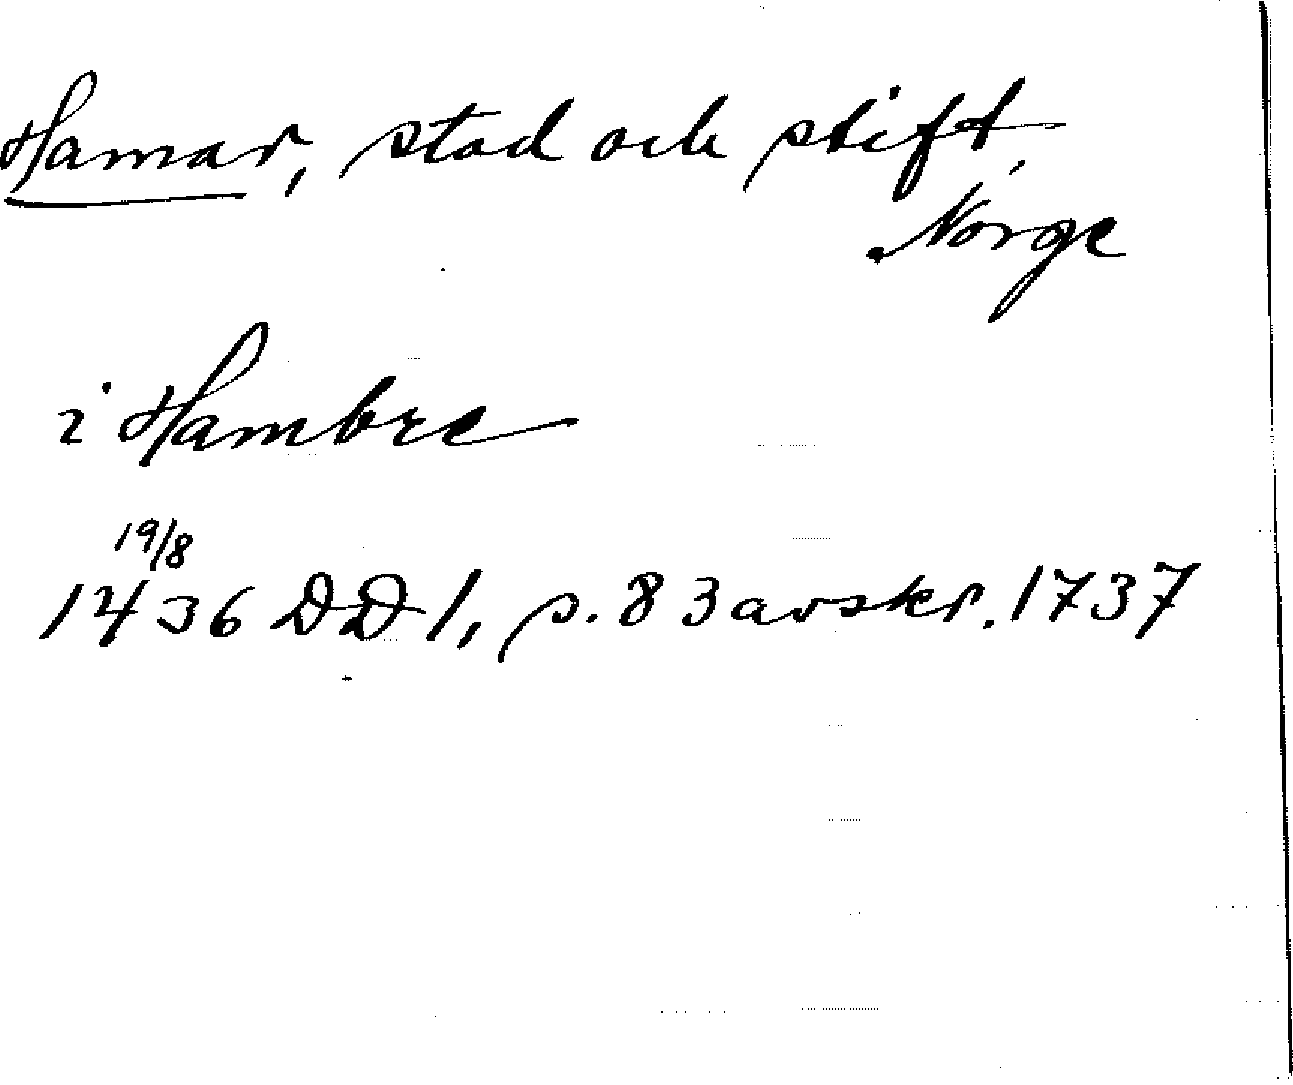 Hamar, stad och stift,
Norge
i Hambre
19/8
1436 DD 1, s. 83 avskr. 1737